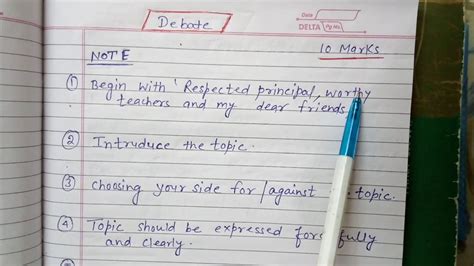 Debate
Date
DELTA Pg No
NOTE
10 Marks
① Begin with ' Respected principal, worthy
teachers and my dear friends
② Intruduce the topic.
③ choosing your side for/against topic.
④ Topic should be expressed forcefully
and clearly.